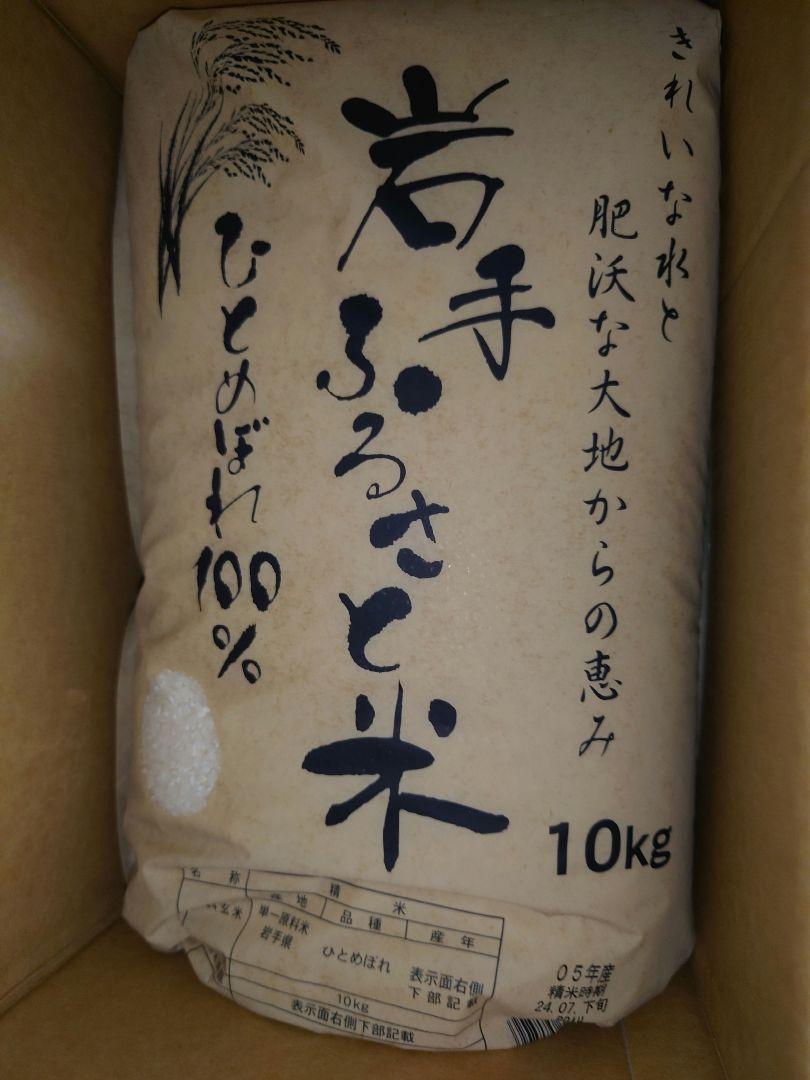 きれいな水と
肥沃な大地からの恵み
岩手
ふるさと米
ひとめぼれ100%
10kg
名称 精米
産地 品種 産年
玄米 単一原料米
岩手県 ひとめぼれ 表示面右側
下部記載
10kg
表示面右側下部記載
05年産
精米時期
24.07.下旬